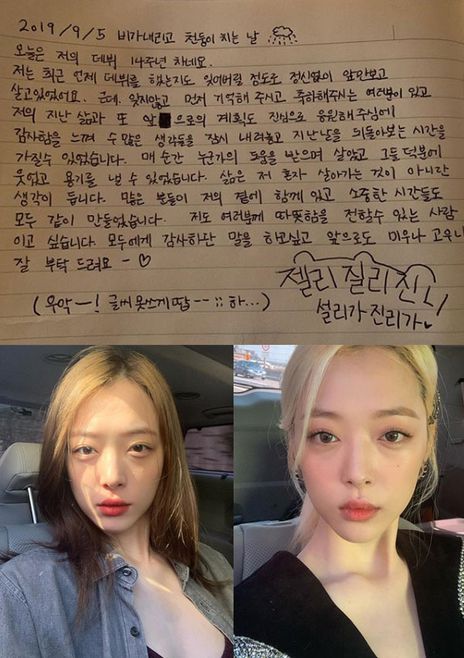 2019/9/5 비가내리고 천둥이 치는 날
오늘은 저의 데뷔 14주년 차네요.
저는 최근 언제 데뷔를 했는지도 잊어버릴 정도로 정신없이 앞만보고
살고있었어요. 근데, 잊지않고 먼저 기억해 주시고 축하해주시는 여러분이 있고
저의 지난 삶과 또 앞으로의 계획도 진심으로 응원해 주심에
감사함을 느껴 수 많은 생각들을 잠시 내려놓고 지난날을 되돌아보는 시간을
가질수 있었습니다. 매 순간 누군가의 도움을 받으며 살았고 그들 덕분에
웃었고 용기를 낼 수 있었습니다. 삶은 저 혼자 살아가는 것이 아니란
생각이 듭니다. 많은 분들이 저의 곁에 함께 있고 소중한 시간들도
모두 같이 만들었습니다. 저도 여러분께 따뜻함을 전할수 있는 사람
이고 싶습니다. 모두에게 감사하단 말을 하고싶고 앞으로도 미우나 고우나
잘 부탁 드려요 - ♡
젤리 질리 진리
설리가 진리가♥
(우악—! 글씨 못쓰게땀 --;; 하...)